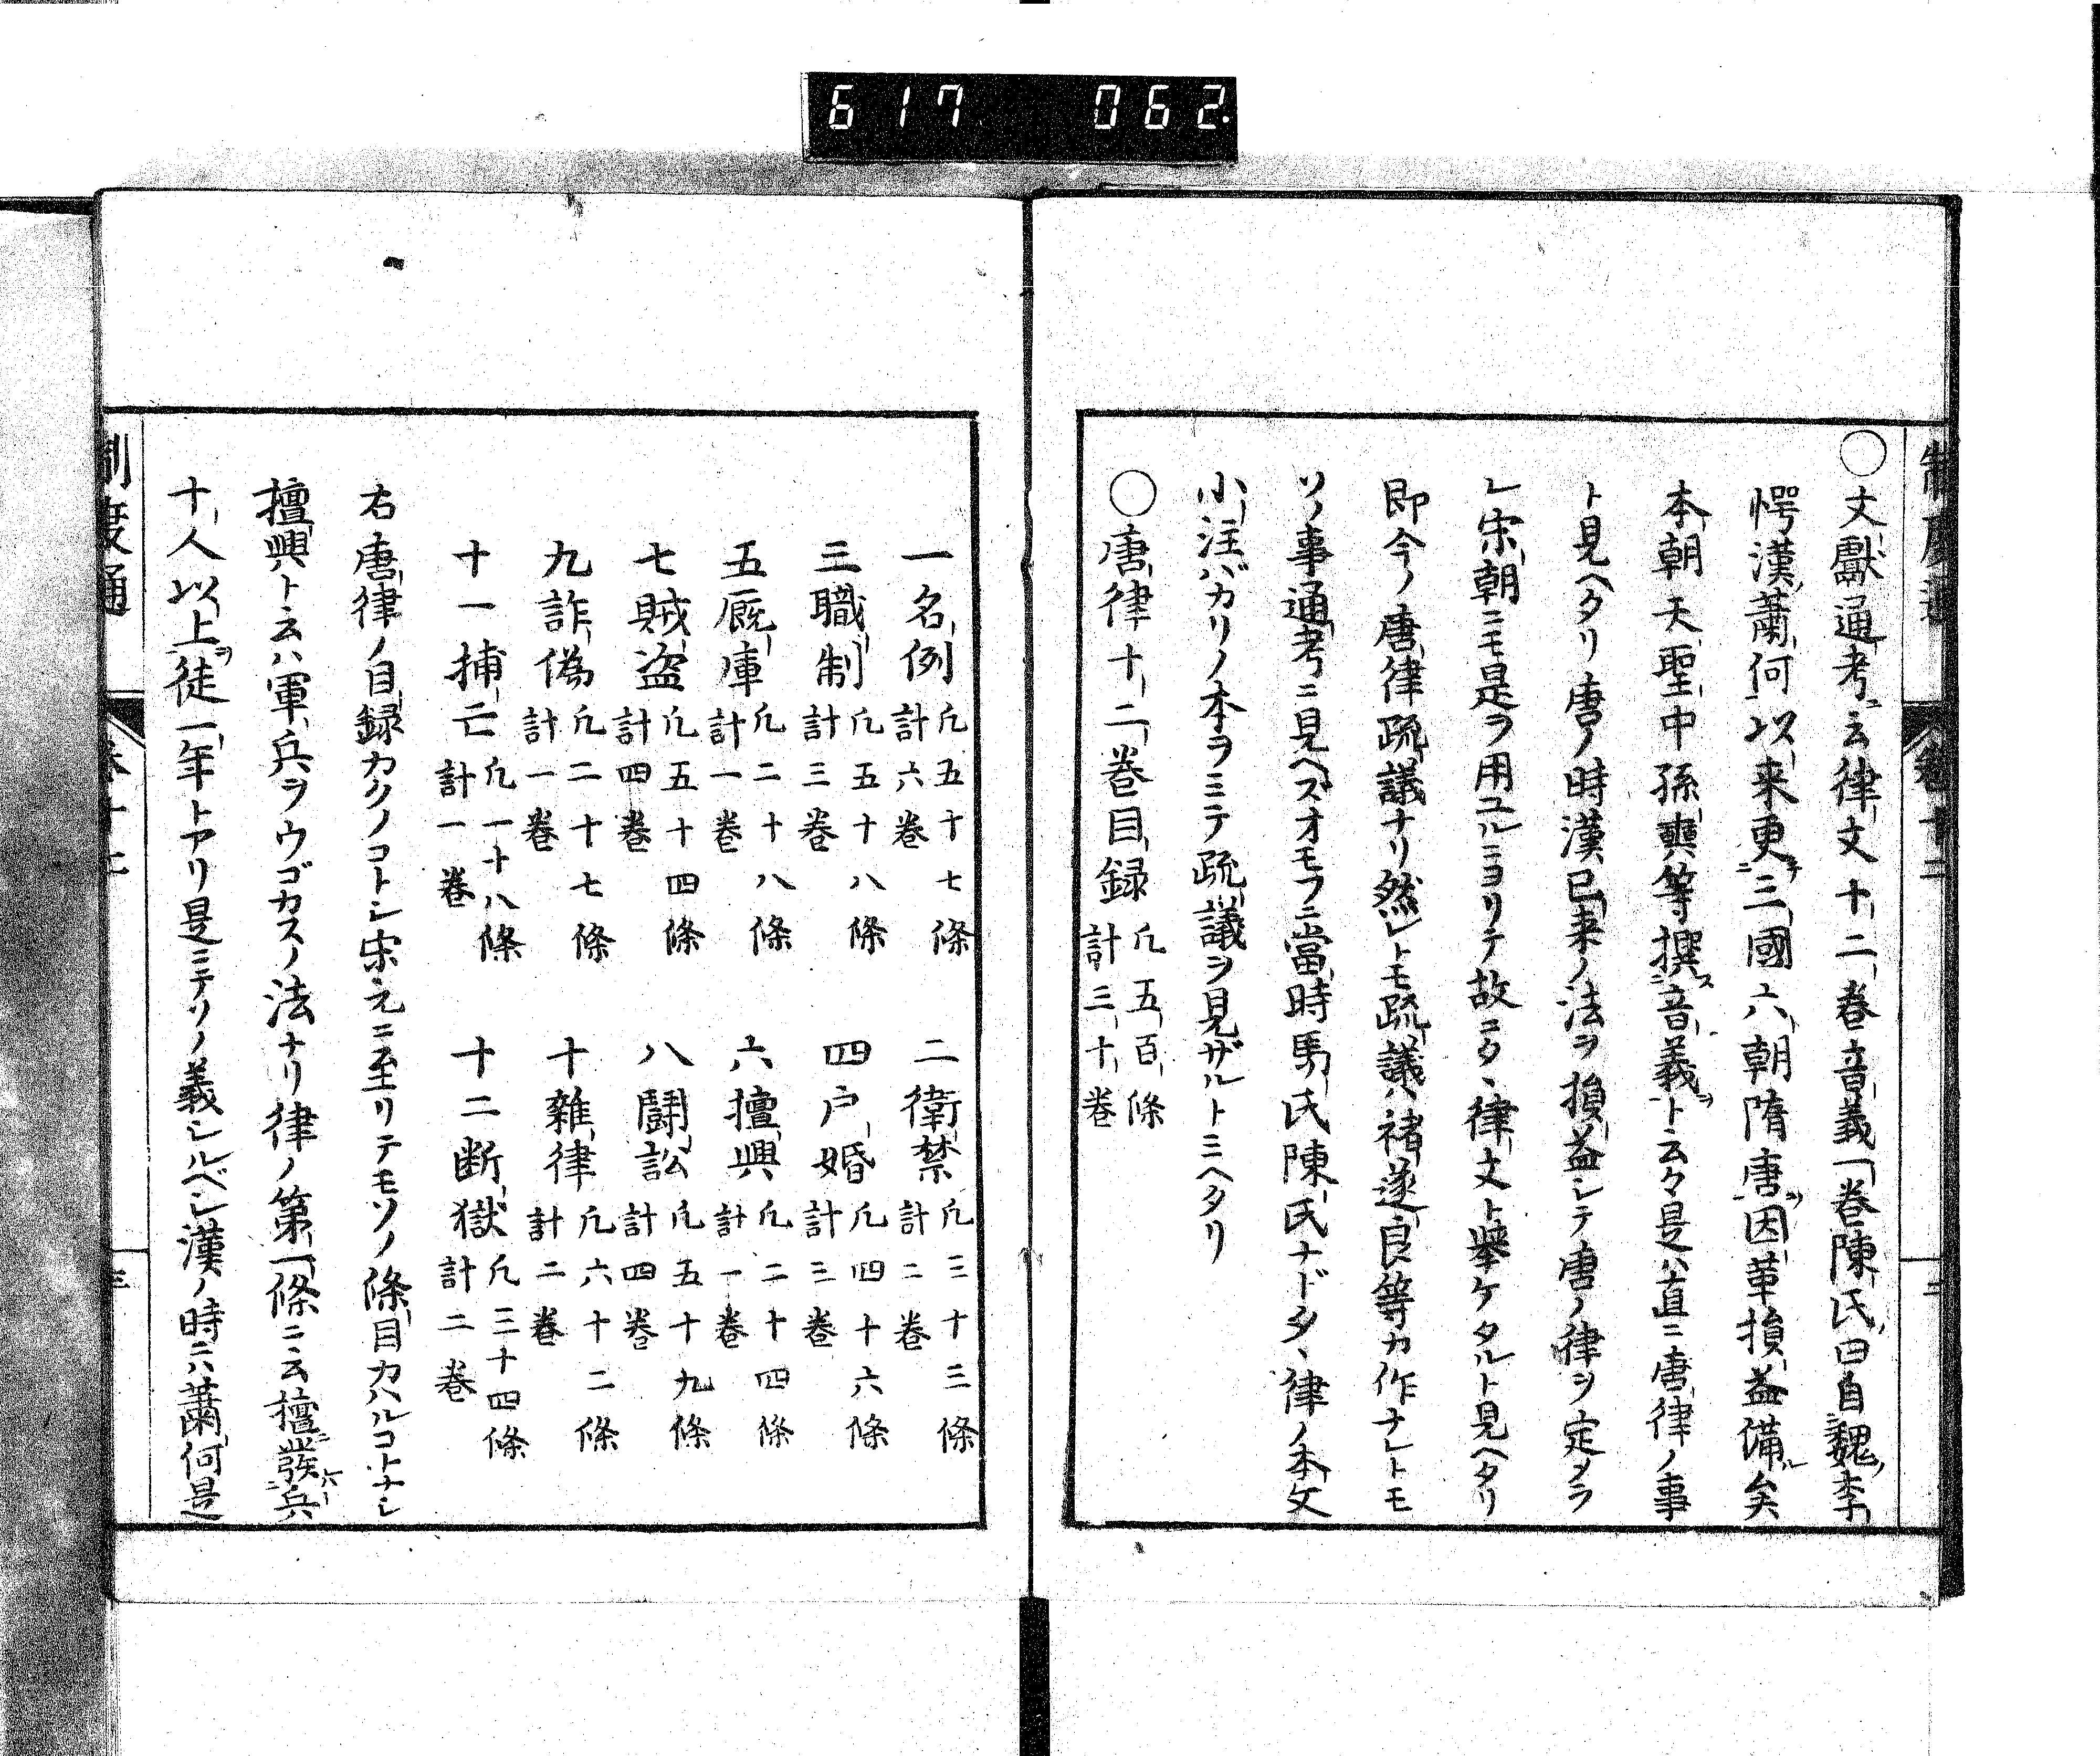 617 062.
制度通 卷十二 二
○文獻通考ニ云律文十二巻音義一巻陳氏曰自魏李
愕漢蕭何以来更三國六朝隋唐因革損益備矣
本朝天聖中孫奭等撰音義ト云々是ハ直ニ唐律ノ事
ト見ヘタリ唐ノ時漢已来ノ法ヲ損益シテ唐ノ律ヲ定メラ
レ宋朝ニモ是ヲ用ユルニヨリテ故ニタヽ律文ト挙ケタルト見ヘタリ
即今ノ唐律疏議ナリ然レトモ疏議ハ褚遂良等カ作ナレトモ
ソノ事通考ニ見ヘズオモフニ當時馬氏陳氏ナドタヽ律ノ本文
小注バカリノ本ヲミテ疏議ヲ見ザルトミヘタリ
○唐律十二巻目録 凡五百條 計三十巻
一名例 凡五十七條 計六巻 二衛禁 凡三十三條 計二巻
三職制 凡五十八條 計三巻 四户婚 凡四十六條 計三巻
五厩庫 凡二十八條 計一巻 六擅興 凡二十四條 計一巻
七賊盗 凡五十四條 計四巻 八鬪訟 凡五十九條 計四巻
九詐偽 凡二十七條 計一巻 十雜律 凡六十二條 計二巻
十一捕亡 凡一十八條 計一巻 十二断獄 凡三十四條 計二巻
右唐律ノ目録カクノコトシ宋元ニ至リテモソノ條目カハルコトナシ
擅興ト云ハ軍兵ヲウゴカスノ法ナリ律ノ第一條ニ云擅發兵
十人以上徒一年トアリ是ニテソノ義シルベシ漢ノ時ハ蕭何是
制度通 卷十二 三